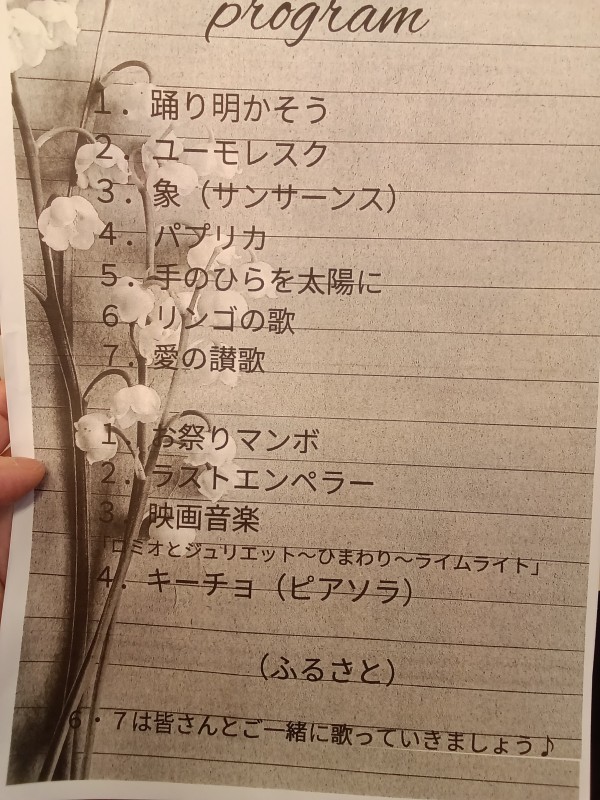 program
1．踊り明かそう
2．ユーモレスク
3．象（サンサーンス）
4．パプリカ
5．手のひらを太陽に
6．リンゴの歌
7．愛の讃歌
1．お祭りマンボ
2．ラストエンペラー
3．映画音楽
「ロミオとジュリエット～ひまわり～ライムライト」
4．キーチョ（ピアソラ）
（ふるさと）
6・7は皆さんとご一緒に歌っていきましょう♪